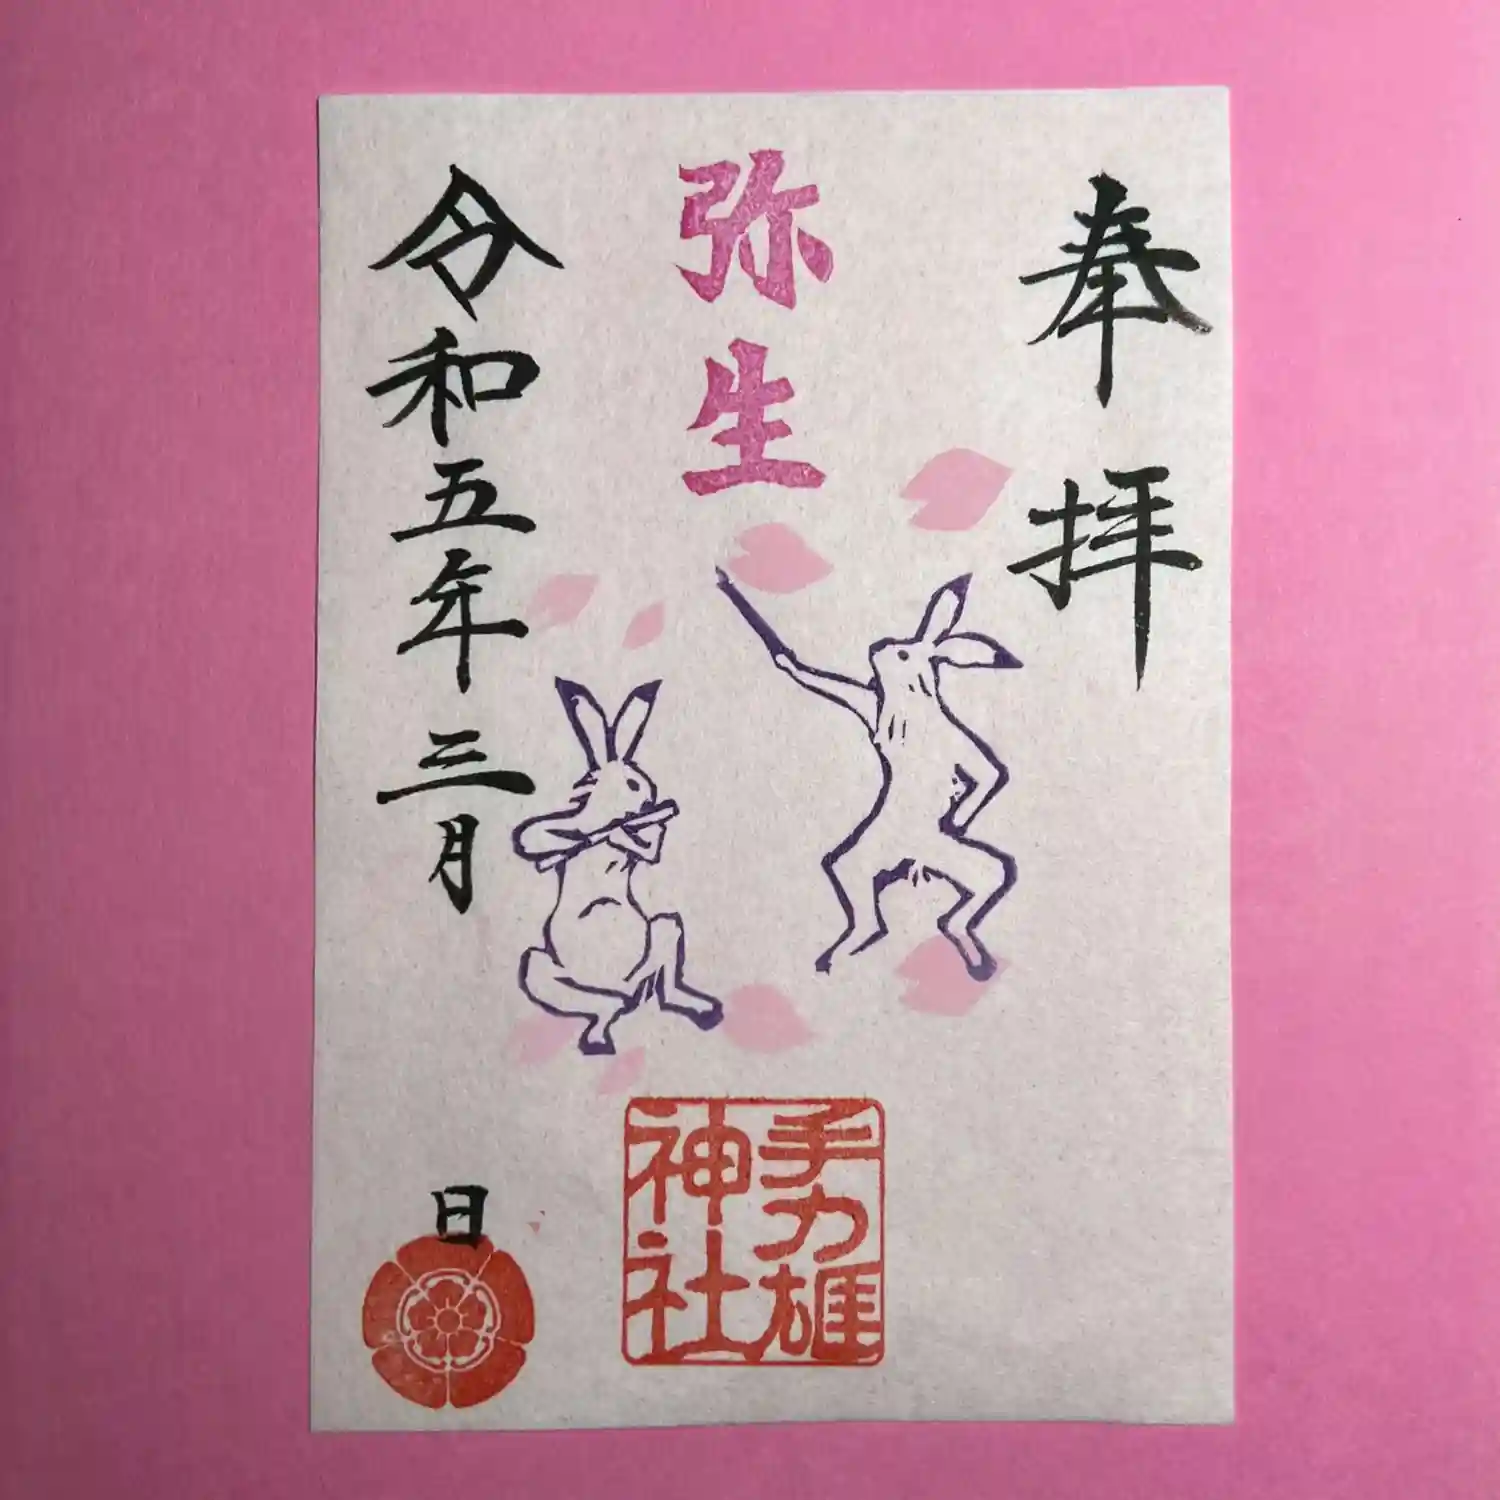 奉拝
弥生
手力雄
神社
令和五年三月
日